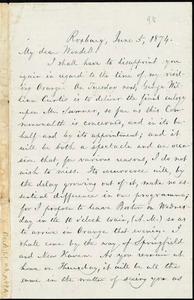 Roxbury, June 5, 1874.
My dear Wendell:
I shall have to disappoint you
again in regard to the time of my visit-
ing Orange. On Tuesday next, George Wil-
liam Curtis is to deliver the final eulogy
upon Mr. Sumner, so far as this Com-
monwealth is concerned, and in its be-
half and by its appointment; and it
will be both a spectacle and an occa-
sion, which, for various reasons, I do not
wish to miss. Its occurrence will, by
the delay growing out of it, make no es-
sential difference in our programme;
for I propose to leave Boston on Wednes-
day in the 10 o'clock train, (A.M.) so as
to arrive in Orange that evening. I
shall come by the way of Springfield
and New Haven. As you remain at
home on Thursday, it will be all the
same in the matter of seeing you as